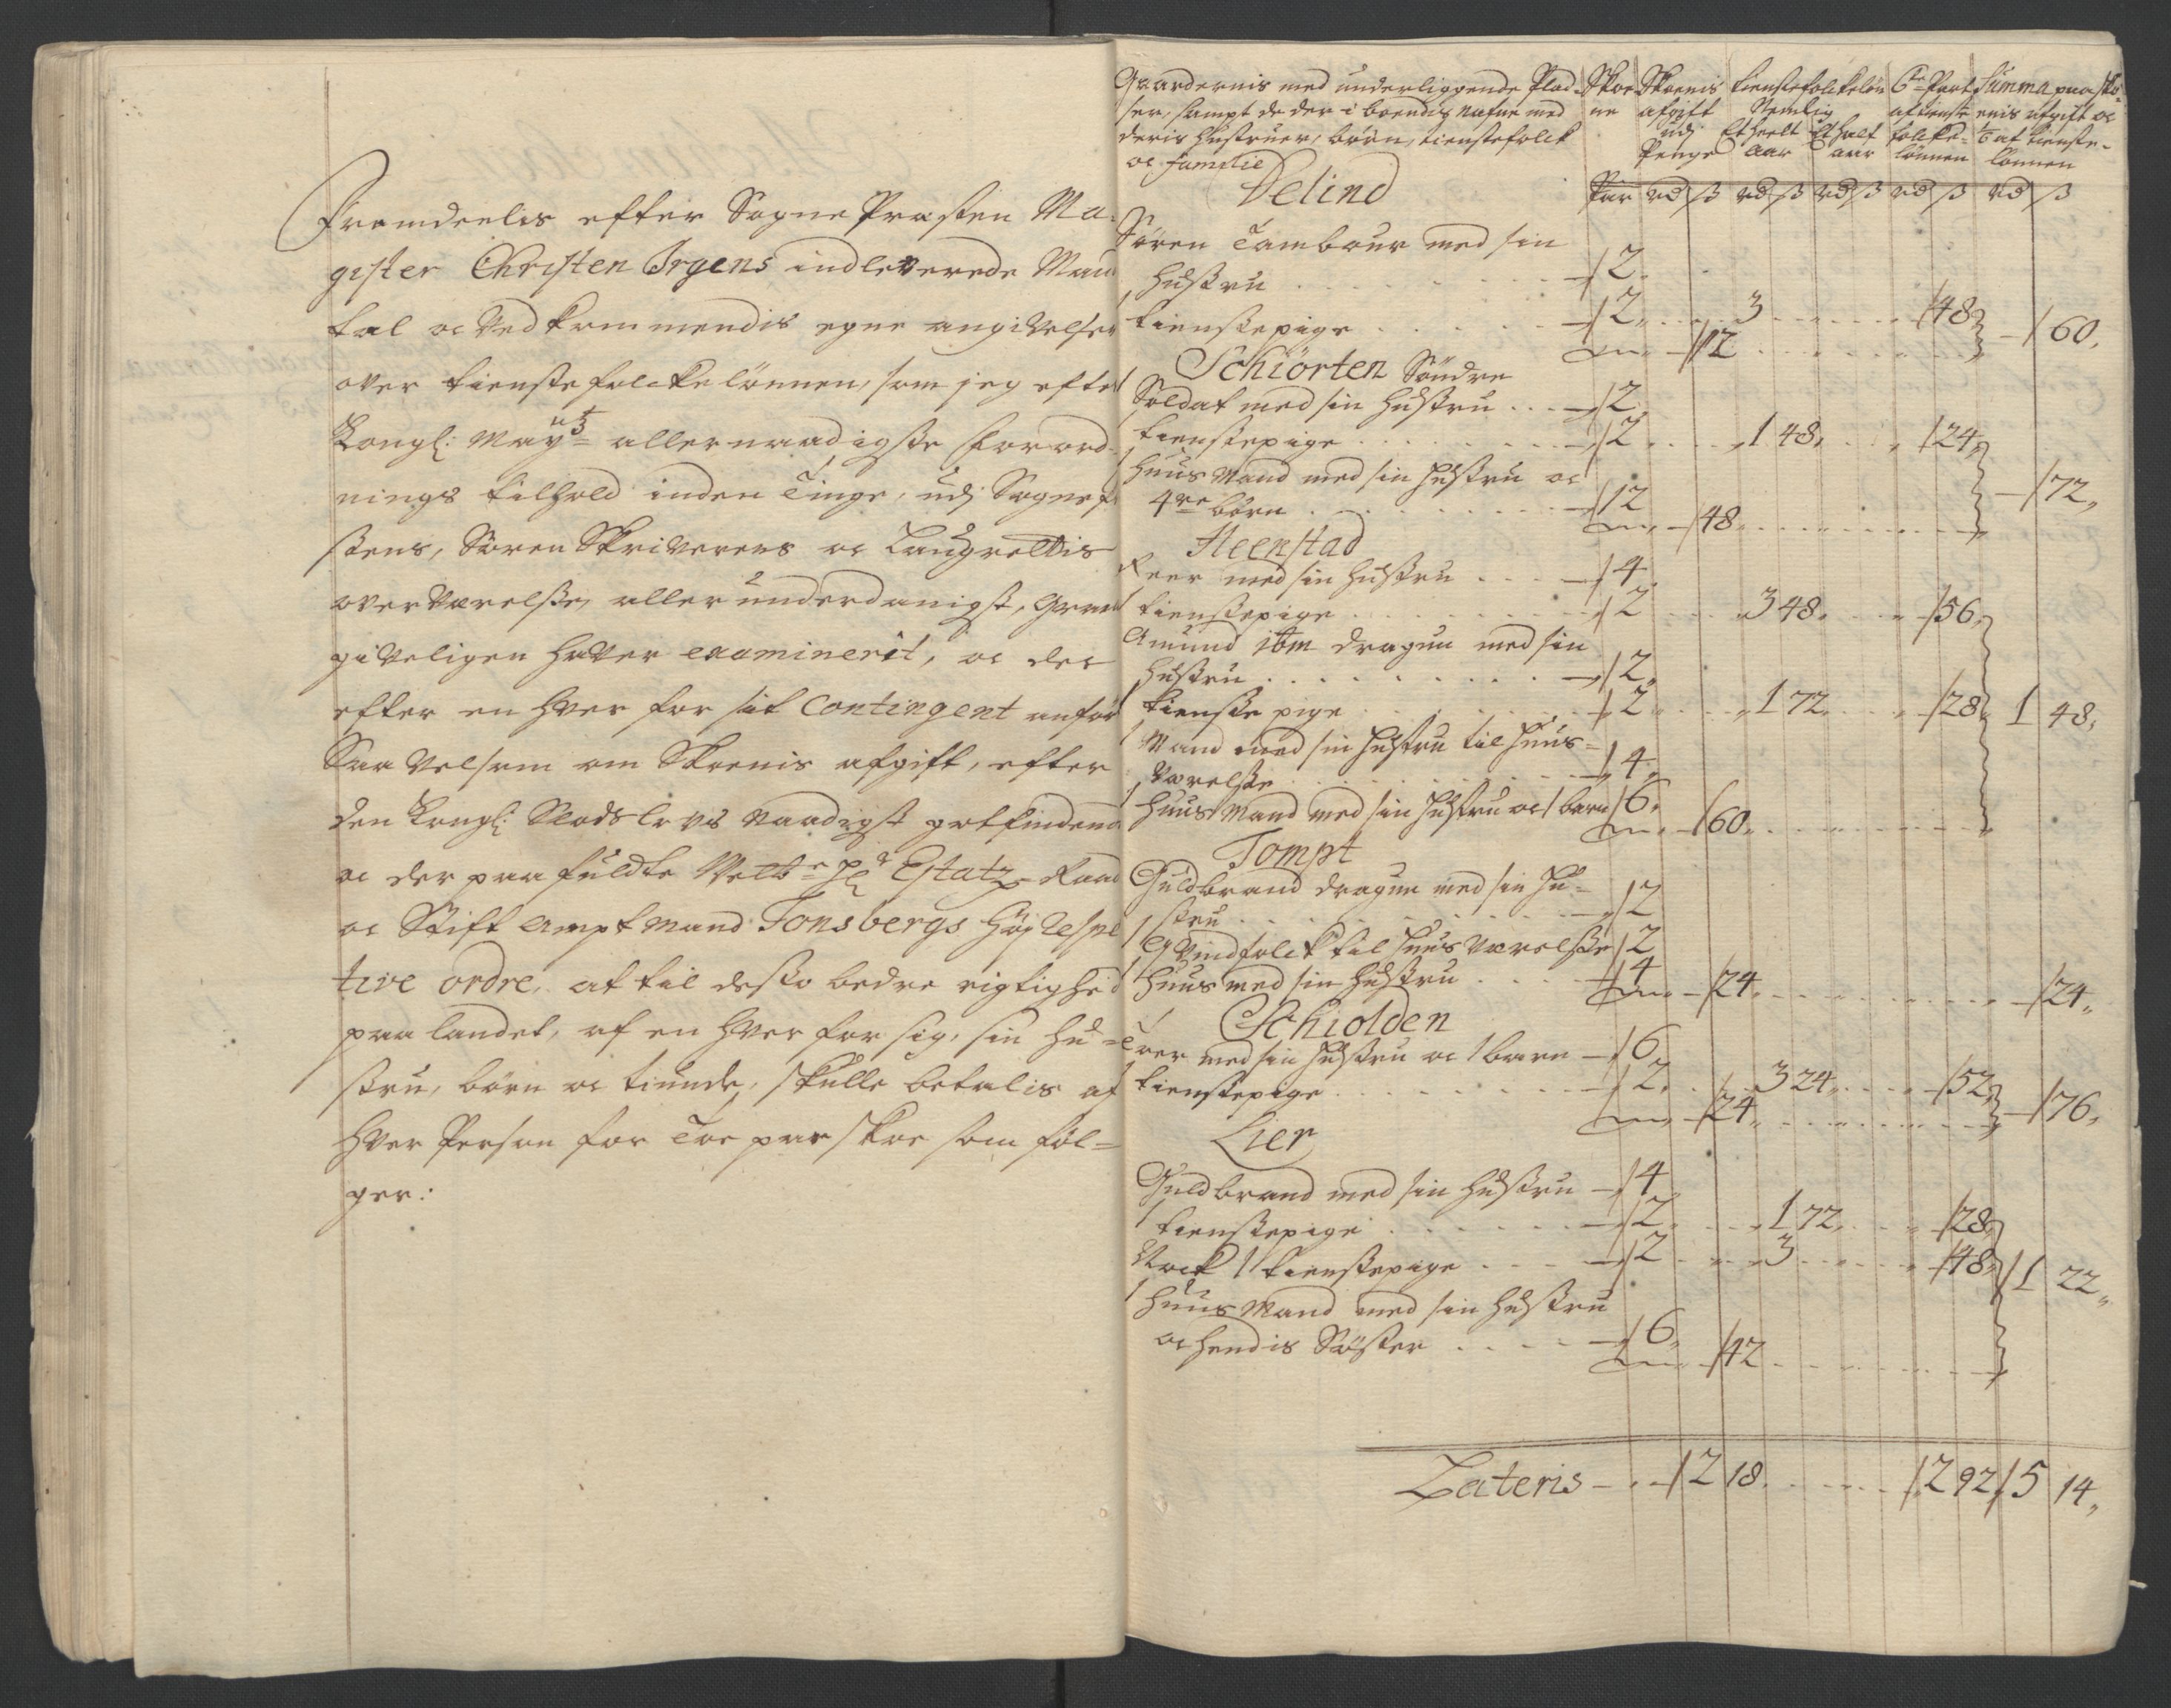 Fremdeelis efter Sogne Præsten Ma-
gister Christen Irgens indleverede Man
tal oc Vedkommendis egne angivelse
over tieneste folcke lønnen, som jeg efter
Kongl: May:tz allernaadigste forord-
nings tilhold inden Tinge, udj Sogne
stens, Sören Skriverens oc Laugrettis
overværelsse, aller underdanigst,
giveligen haver examinerit, oc der
efter en hver for sit Contingent anfør
Saa velsom om Skoenis afgift, efter
den Kongl: Slods lovs naadigst gotfindende
oc der paa fuldte Velb:e Hr Etatz Raad
oc Stift Amptmand Tonsbergs høj respe
tive ordre, at til desto bedre rigtighed
paa landet, af en hver for sig, sin hu-
stru, børn oc tiunde, skulle betalis af
hver Person for Toe par skoe som föl-
ger:
Gaardernis med underliggende Plad-
ser, sampt de der i boendis Nafne med
deris hustruer, börn, tienestefolck
oc familie
Skoe
ne
Par
Skoenis
afgift
udj
Penge
rd ß
tienestefolckelön
Nemlig
Et heelt Aar
rd ß
Et halt aar
rd ß
6te Part
af tieneste
folcke-
lönnen
rd ß
Summa paa sko-
enis afgift oc
1/6 af tieneste-
lönnen
rd ß
Delind
Sören Tambour med sin
hustru . . . 2
1 tienestepige . . . 2 . . 3 . . 48
12 . . . 60
Schiörten Söndre
Soldat med sin hustru . . 2
1 tienestepige . . . 2 . . 1 48 . . 24
1 huusmand med sin hustru oc
4re börn . . . 12
48 . . . 72
Steenstad
Peer med sin hustru . . . 4
1 tienestepige . . . 2 . . 3 48 . . 56
Amund itm dragun med sin
hustru . . . 2
1 tieneste pige . . . 2 . . 1 72 . . 28 1 48
1 Mand med sin hustru til huus-
værelsse . . . 4
1 huusmand med sin hustru oc 1 barn 6
60
Tompt
Guldbrand dragun med sin hu-
stru . . . 2
1 Qvindfolck til huus værelsse 2
1 huus med sin hustru . . . 4
24 . . . 24
Schiolden
Toer med sin hustru oc 1 barn 6
1 tienestepige . . . 2 . . 3 24 . . 52
24 . . . 76
Lier
Guldbrand med sin hustru 4
1 tienestepige . . . 2 . . 1 72 . . 28
Nock 1 tienestepige . . . 2 . . 3 . . 48 1 22
1 huusmand med sin hustru
oc hendis Söster . . . 6
42
Lateris . . 2 18 . . . 2 92 5 14